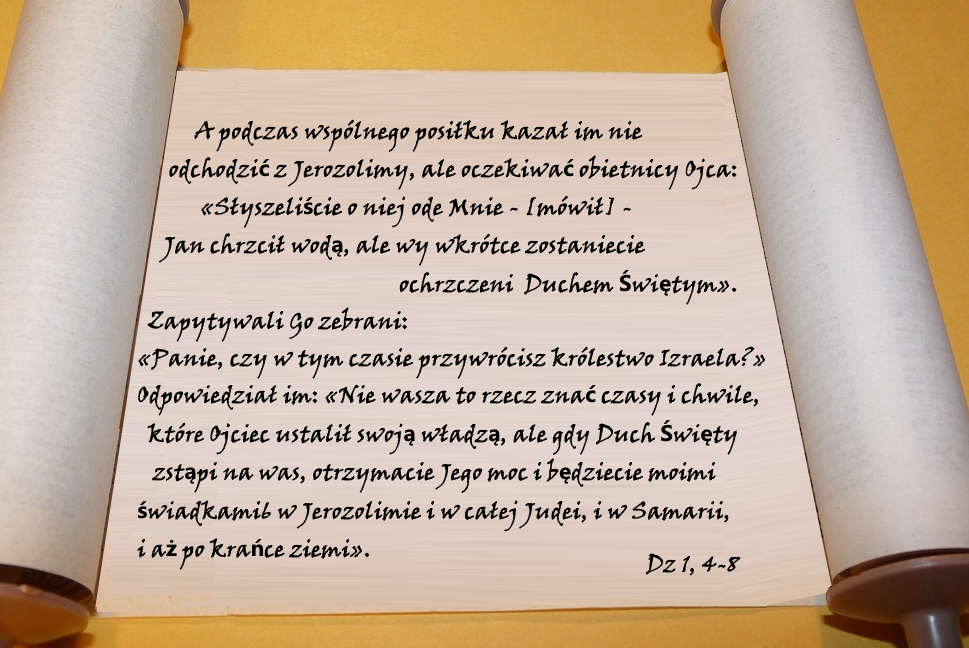 A podczas wspólnego posiłku kazał im nie
odchodzić z Jerozolimy, ale oczekiwać obietnicy Ojca:
«Słyszeliście o niej ode Mnie - [mówił] -
Jan chrzcił wodą, ale wy wkrótce zostaniecie
ochrzczeni Duchem Świętym».
Zapytywali Go zebrani:
«Panie, czy w tym czasie przywrócisz królestwo Izraela?»
Odpowiedział im: «Nie wasza to rzecz znać czasy i chwile,
które Ojciec ustalił swoją władzą, ale gdy Duch Święty
zstąpi na was, otrzymacie Jego moc i będziecie moimi
świadkami6 w Jerozolimie i w całej Judei, i w Samarii,
i aż po krańce ziemi».
Dz 1, 4-8